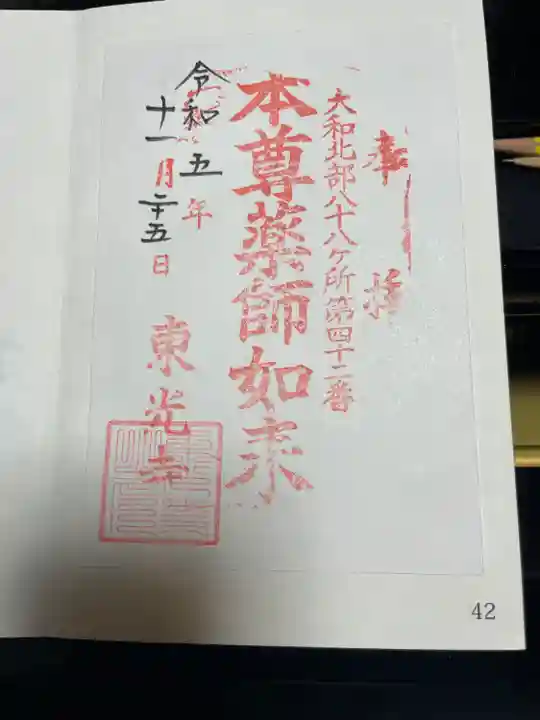 奉拝
大和北部八十八ヶ所第四十二番
本尊薬師如来
令和五年
十一月二十五日
東光寺
42